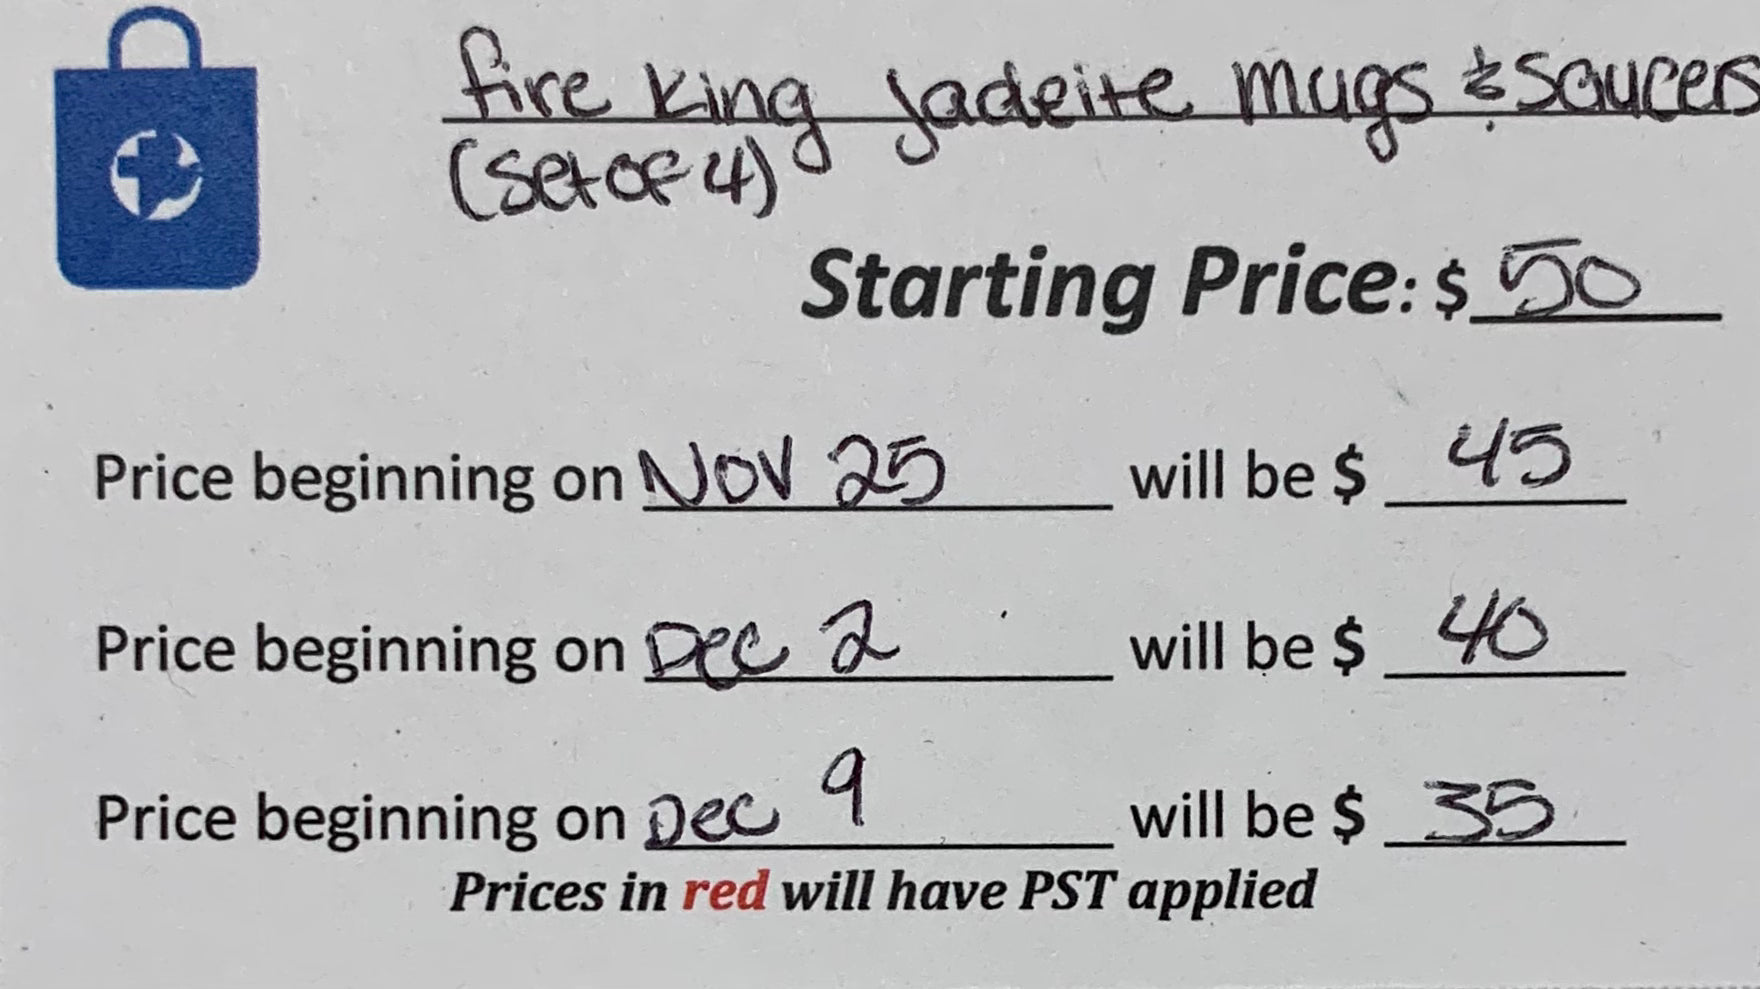 fire King Jadeite mugs & saucers
(set of 4)
Starting Price: $ 50
Price beginning on Nov 25 will be $ 45
Price beginning on Dec 2 will be $ 40
Price beginning on Dec 9 will be $ 35
Prices in red will have PST applied